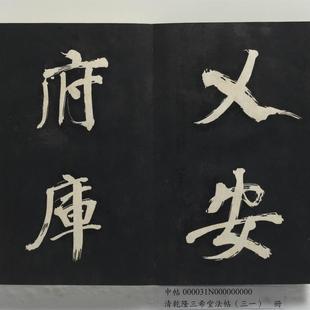 乂安
府庫
中帖 000031N000000000
清乾隆三希堂法帖（三一） 冊